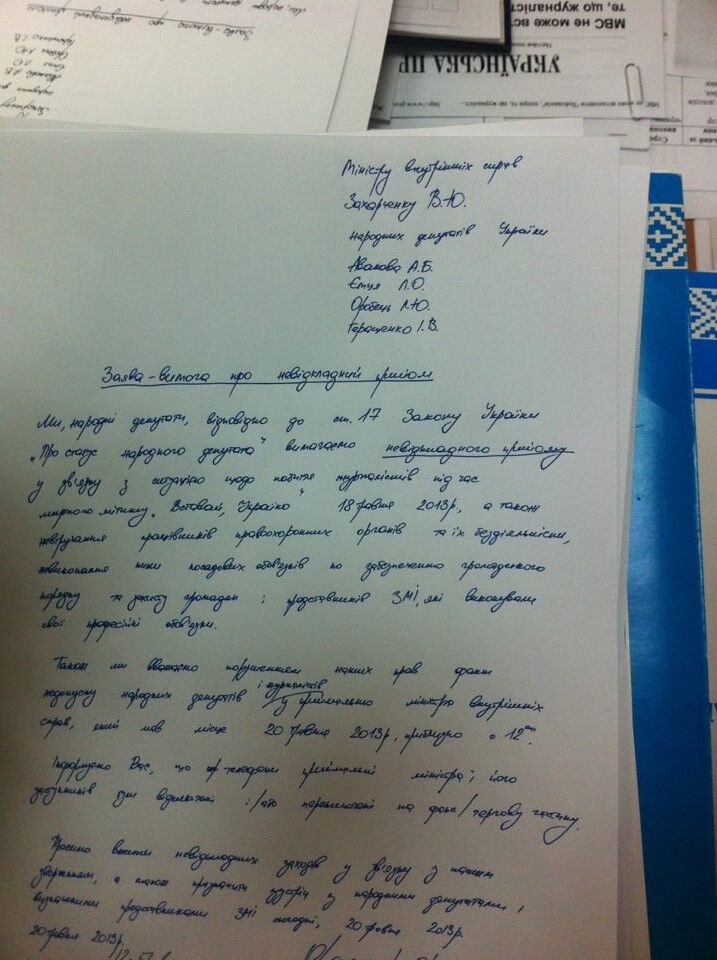 МВС не може вс
те, що журналіст
УКРАЇНСЬКА ПР
Заява-вимога про невідкладний прийом
Міністру внутрішніх справ
Захарченку В.Ю.
народних депутатів України
Авакова А.Б.
Ємця Л.О.
Оробець Л.Ю.
Геращенко І.В.
Заява-вимога про невідкладний прийом
Ми, народні депутати, відповідно до ст. 17 Закону України
„Про статус народного депутата" вимагаємо невідкладного прийому
у зв'язку з ситуацією щодо побиття журналістів під час
мирного мітингу „Вставай, Україно" 18 травня 2013р, а також
невручання працівників правоохоронних органів та їх бездіяльністю,
невиконання ними посадових обов'язків по забезпеченню громадського
порядку та захисту громадян і представників ЗМІ, які виконували
свої професійні обов'язки.
Також ми вважаємо порушенням наших прав факт
недопуску народних депутатів і журналістів у приймальню міністра внутрішніх
справ, який мав місце 20 травня 2013р, приблизно о 12⁰⁰.
Інформуємо Вас, що телефони приймальні міністра і його
заступників були відключені і/або переключені на факс/
Просимо вжити невідкладних заходів у зв'язку з нашим
зверненням, а також призначити зустріч з народними депутатами і
визначеними представниками ЗМІ сьогодні, 20 травня 2013р.
20 травня 2013р.